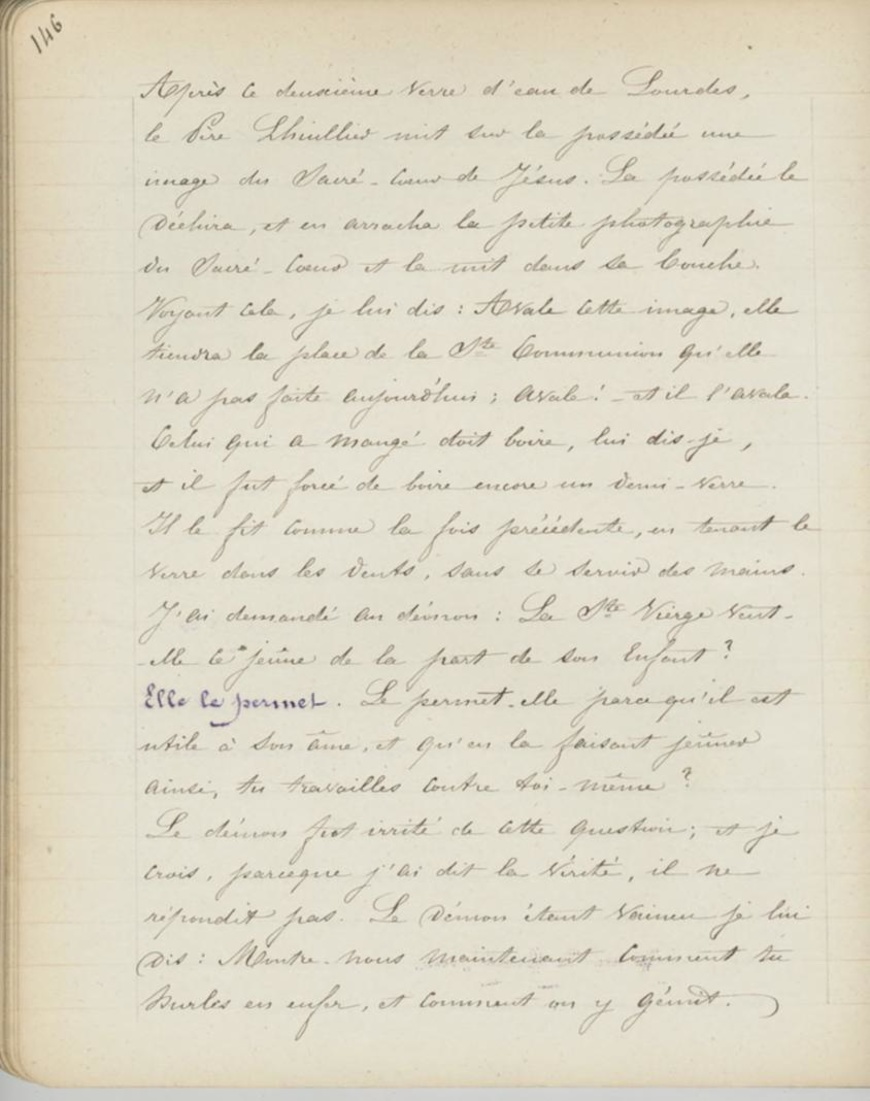 146
Après ce deuxième verre d'eau de Lourdes,
le Père Lhuillier mit sur la possédée une
image du Sacré-Cœur de Jésus. La possédée le
déchira, et en arracha la petite photographie
du Sacré-Cœur et la mit dans sa bouche.
Voyant cela, je lui dis : Avale cette image, elle
tiendra la place de la Ste Communion qu'elle
n'a pas faite aujourd'hui ; avale ! - et il l'avale.
Celui qui a mangé doit boire, lui dis-je,
et il fut forcé de boire encore un demi-verre.
Il le fit comme la fois précédente, en tenant le
verre dans les dents, sans se servir des mains.
J'ai demandé au démon : La Ste Vierge veut-
-elle ce jeûne de la part de son Enfant ?
Elle le permet. Le permet-elle parce qu'il est
utile à son âme, et qu'en la faisant jeûner
ainsi, tu travailles contre toi-même ?
Le démon fut irrité de cette question ; et je
crois, parceque j'ai dit la vérité, il ne
répondit pas. Le démon étant vaincu je lui
dis : Montre-nous maintenant comment tu
hurles en enfer, et comment on y gémit.